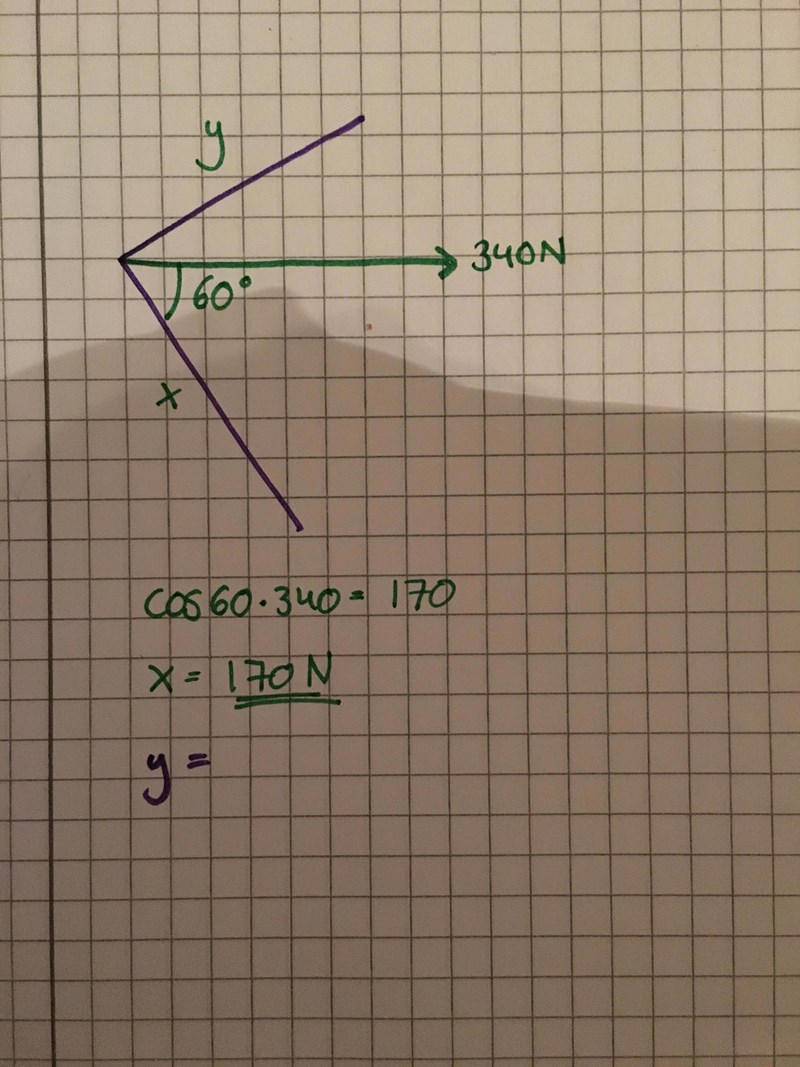 y
340N
60°
x
cos60·340= 170
x= 170N
y=